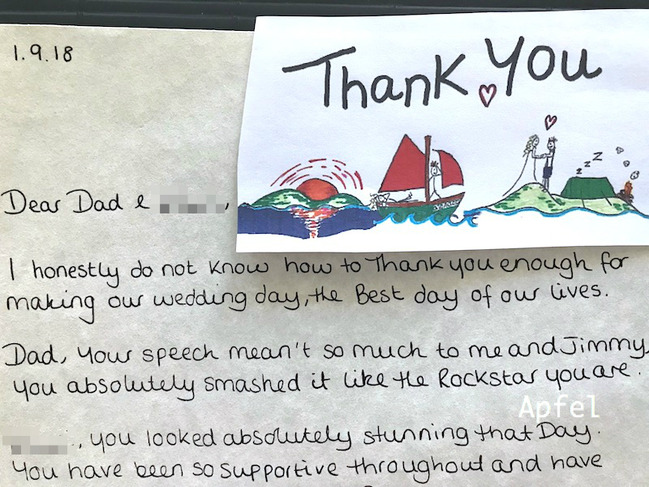 1.9.18
Thank You
z z Z
Dear Dad & ,
I honestly do not know how to Thank you enough for
making our wedding day, the Best day of our lives.
Dad, your speech mean't so much to me and Jimmy
you absolutely smashed it like the Rockstar you are.
Apfel
, you looked absolutely stunning that Day.
You have been so supportive throughout and have